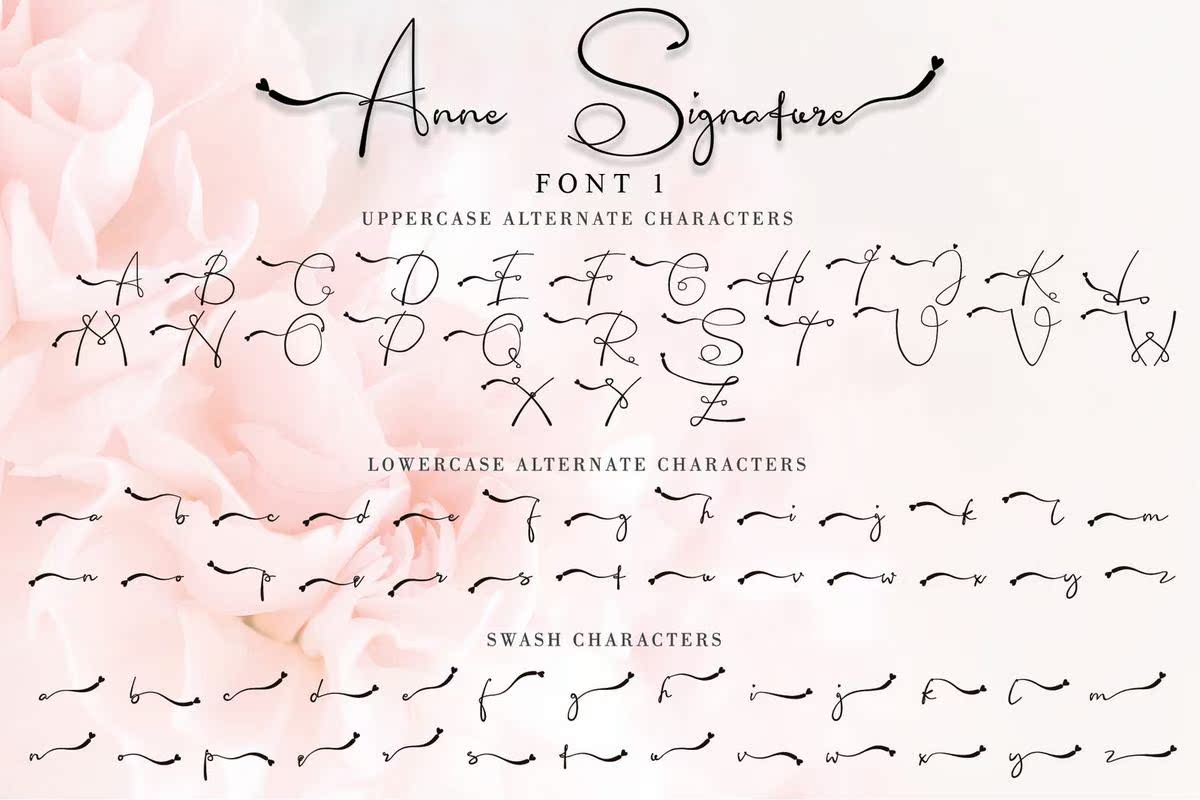 Anne Signature
FONT 1
UPPERCASE ALTERNATE CHARACTERS
A B C D E F G H I J K L
M N O P Q R S T U V W
X Y Z
LOWERCASE ALTERNATE CHARACTERS
a b c d e f g h i j k l m
n o p q r s t u v w x y z
SWASH CHARACTERS
a b c d e f g h i j k l m
n o p q r s t u v w x y z